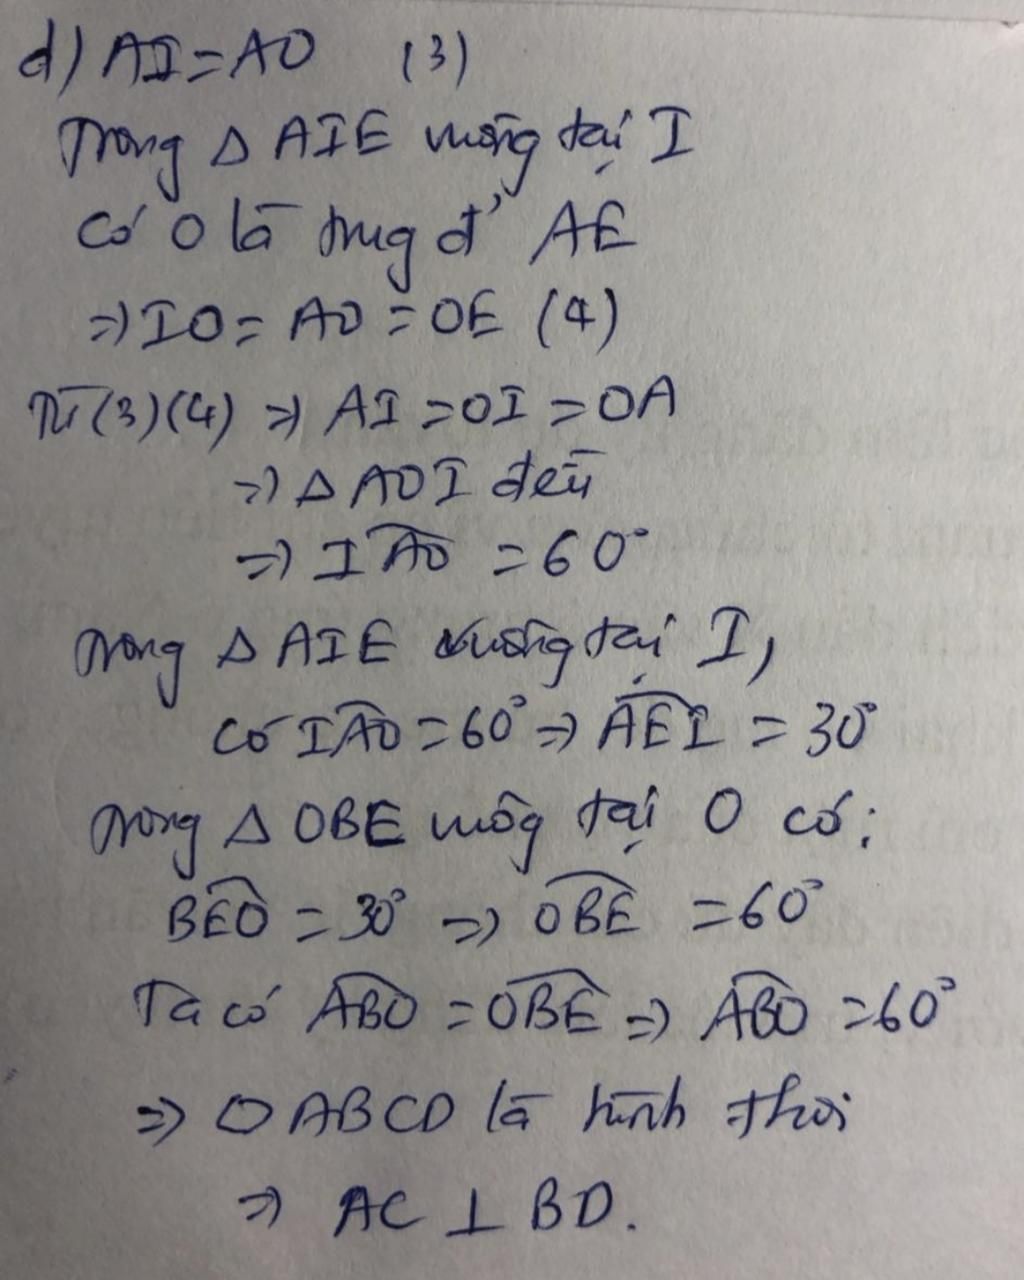 d) AI = AO (3)
Trong Δ AIE vuông tại I
Có O là trung đ' AE
=> IO = AO = OE (4)
Từ (3)(4) => AI = OI = OA
=> Δ AOI đều
=> IÂO = 60°
Trong Δ AIE vuông tại I,
có IÂO = 60° => AÊI = 30°
Trong Δ OBE vuông tại O có:
BÊO = 30° => OBE = 60°
Ta có ABO = OBE => ABO = 60°
=> ◇ ABCD là hình thoi
=> AC ⊥ BD.